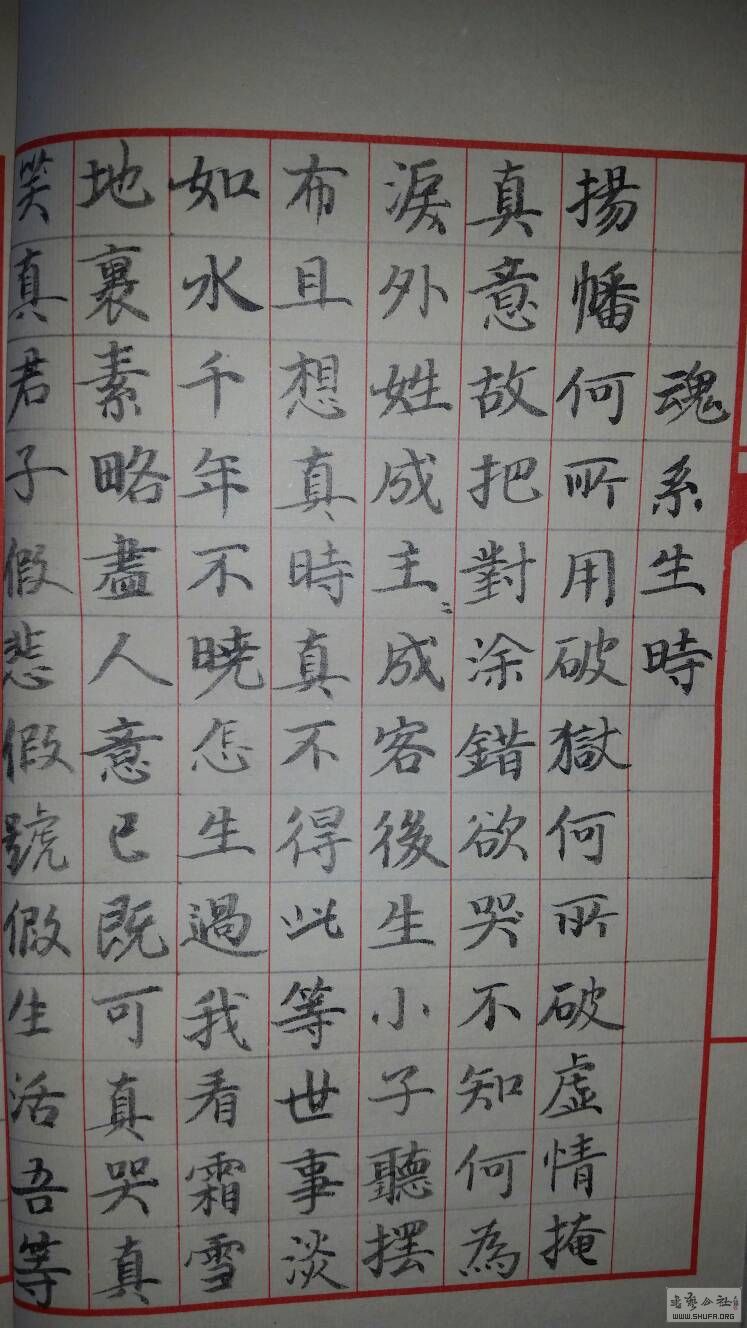 魂系生時
揚幡何所用破獄何所破虛情掩
真意故把對涂錯欲哭不知何為
淚外姓成主成客後生小子聽擺
布且想真時真不得此等世事淡
如水千年不曉怎生過我看霜雪
地裏素略盡人意已既可真哭真
笑真君子假悲假號假生活吾等
WWW.SHUFA.ORG